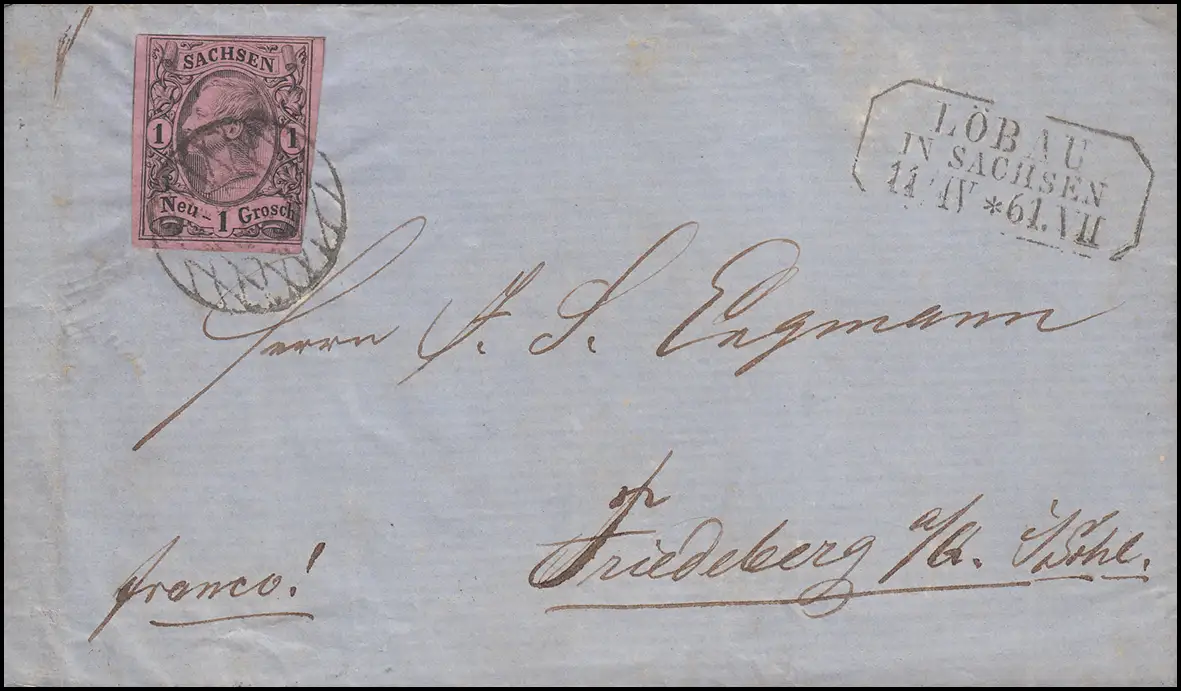 SACHSEN
1 1
Neu-1 Grosch
LÖBAU
IN SACHSEN
11/IV *61.VII
Herrn F. S. Engmann
fr
Friedeberg a/Q.
franco!